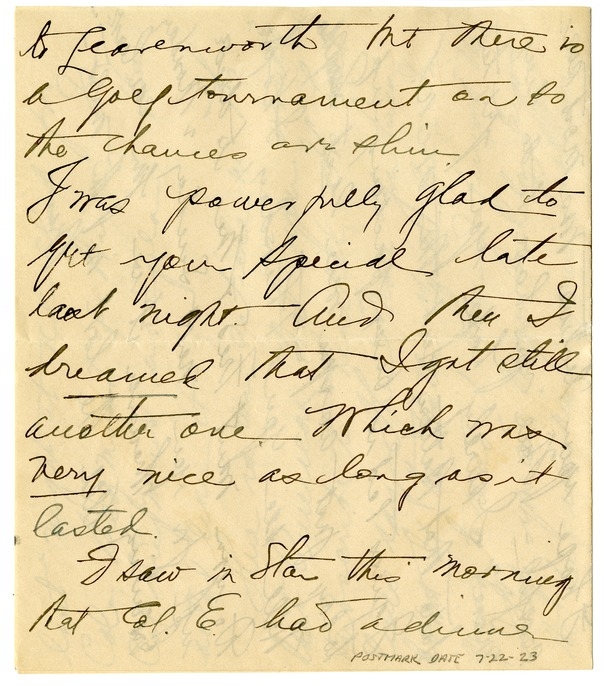 to Leavenworth but there is
a Golf tournament on so
the chances are slim
I was powerfully glad to
get your special late
last night. And then I
dreamed that I got still
another one. Which was
very nice as long as it
lasted.
I saw in Star this morning
that Col. E. had a dinner
POSTMARK DATE 7-22-23